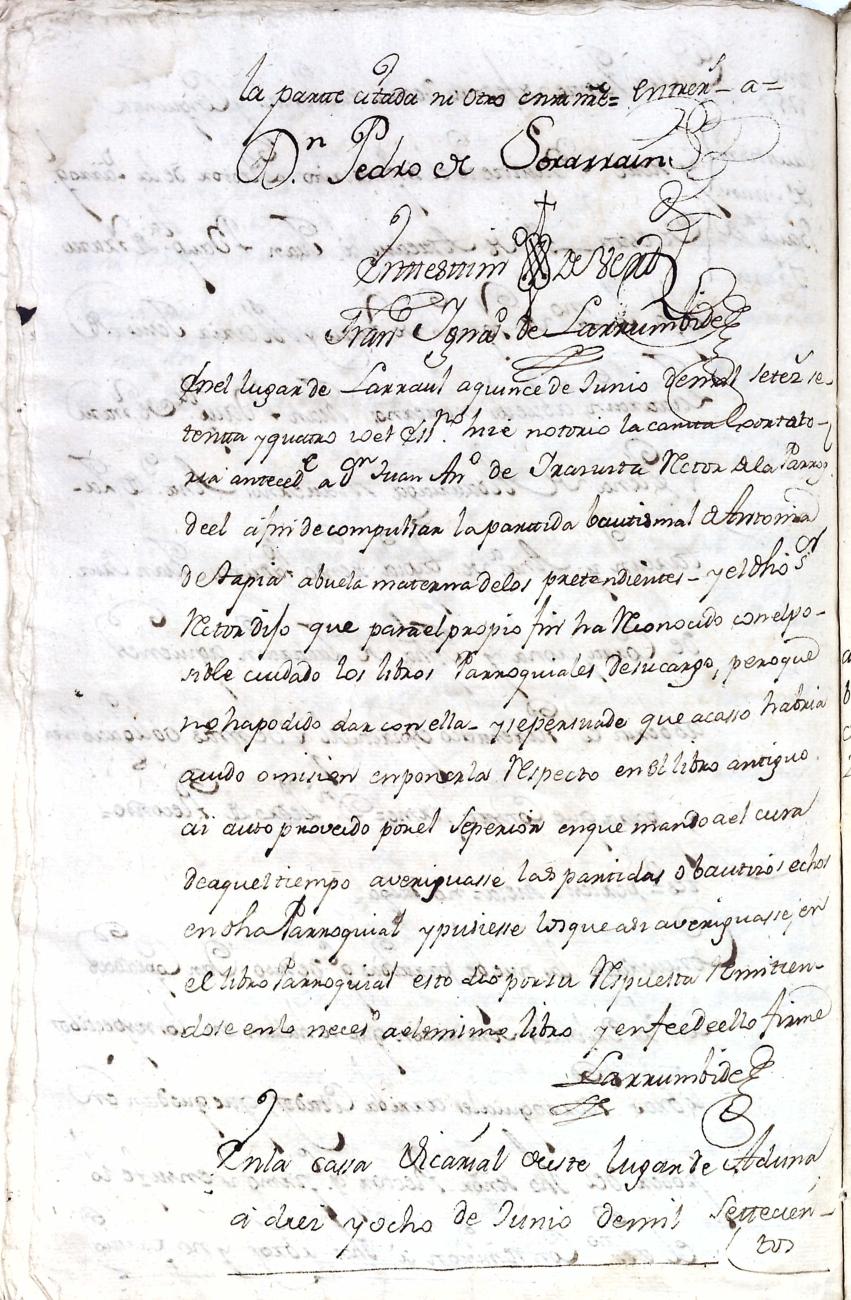 la parte citada ni otro enmme= entrerr.s - a=
D.n Pedro de Sorarrain
En testim.o de verd.
Fran.co Ygna.o de Larrumbide
En el lugar de Larraul a quince de Junio de mil setez.s se-
tenta y quatro io el Ess.no hize notorio la carta exortato-
ria anteced.te a D.n Juan An.o de Irazusta Rector de la Parroq.l
de el a fin de compulsar la partida bautismal de Antonia
de Tapia abuela materna de los pretendientes - y el dho s.or
Rector dijo que para el propio fin ha Reconocido con el po-
sible cuidado los libros Parroquiales de su cargo, pero que
no ha podido dar con ella - y se persuade que acasso habria
auido omision en ponerla Respecto en el libro antiguo
ai auto proveido por el Seperior en que mando a el cura
de aquel tiempo averiguasse las partidas o bautizos echos
en dha Parroquial y pusiesse los que asi averiguasse en
el libro Parroquial esto dio por su Respuesta Remitien-
dose en lo neces.o a el mimo libro y en fee de ello firme
Larrumbide
En la Cassa Vicarial de este lugar de Aduna
a diez y ocho de Junio de mil Settecien-
tos